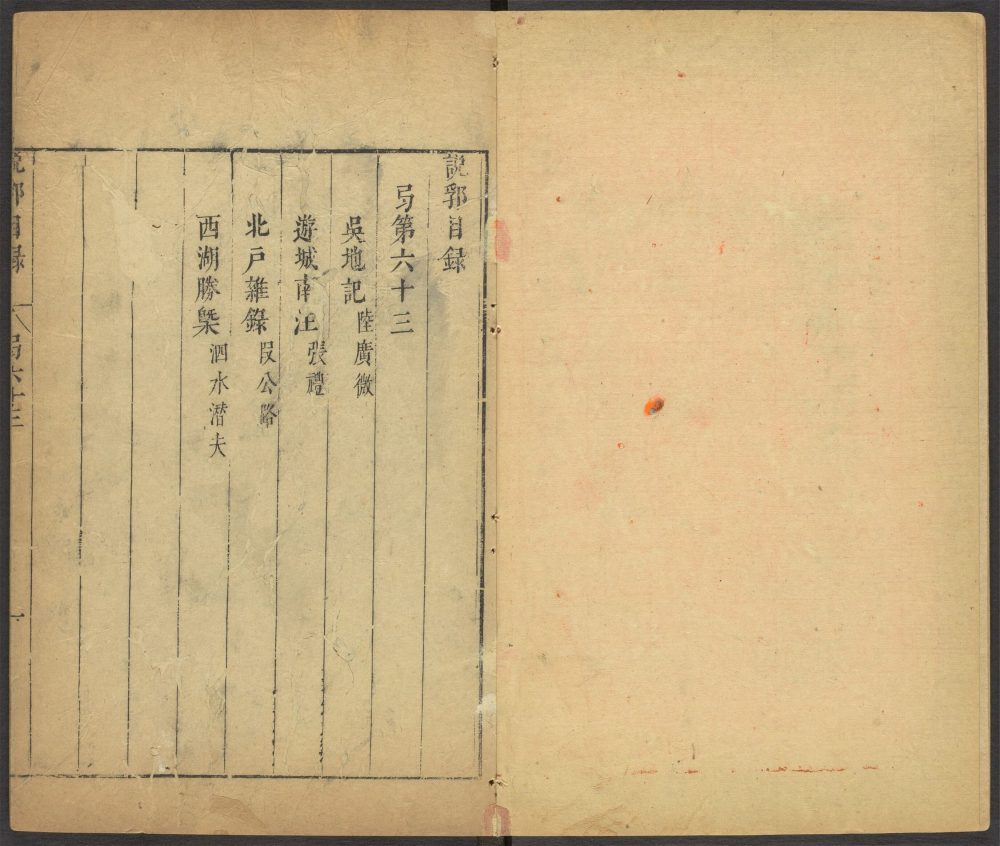 説郛目録
弓第六十三
吳地記 陸廣微
遊城南注 張禮
北戸雜錄 段公路
西湖勝槩 泗水潜夫
説郛目録 弓六十三 一